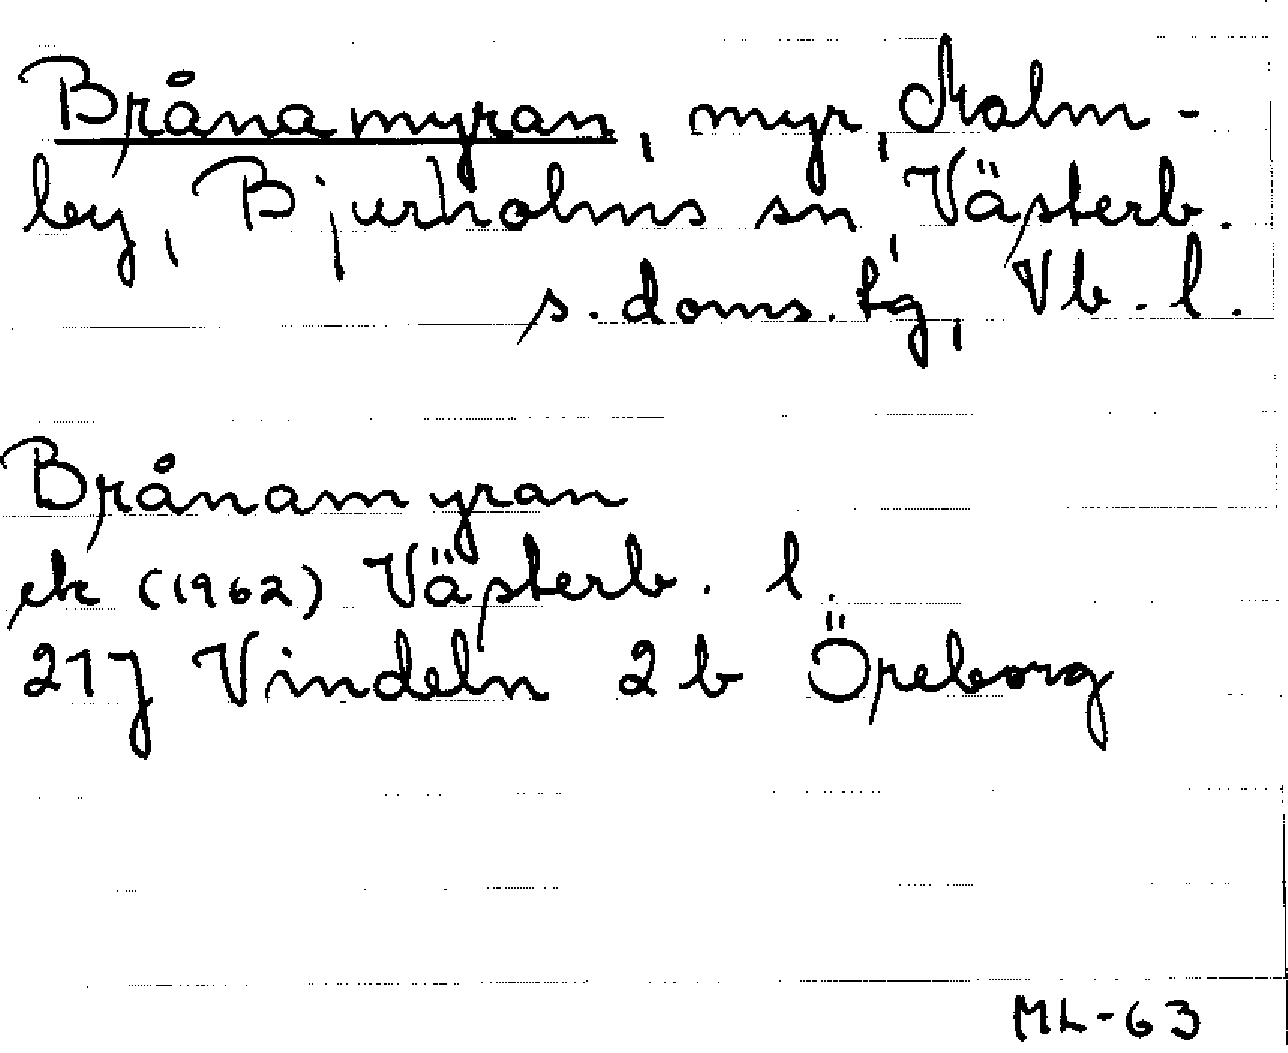 Brånamyran, myr, Malm-
by, Bjurholms sn, Västerb.
s. doms. tg, Vb. l.
Brånamyran
ek (1962) Västerb. l.
21J Vindeln 2b Öreborg
ML-63